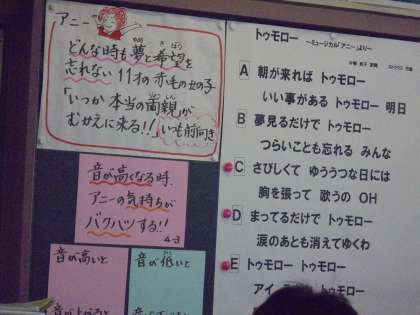 アニー
どんな時も夢と希望を
忘れない 11才の赤毛の女の子
「いつか本当の両親が
むかえに来る!!」いつも前向き
音が高くなる時、
アニーの気持ちが
バクハツする!!
4-3
音が高いと
音が低いと
トゥモロー
～ミュージカル「アニー」より～
A 朝が来れば トゥモロー
いい事がある トゥモロー 明日
B 夢見るだけで トゥモロー
つらいことも忘れる みんな
C さびしくて ゆううつな日には
胸を張って 歌うの OH
D まってるだけで トゥモロー
涙のあとも消えてゆくわ
E トゥモロー トゥモロー
アイ